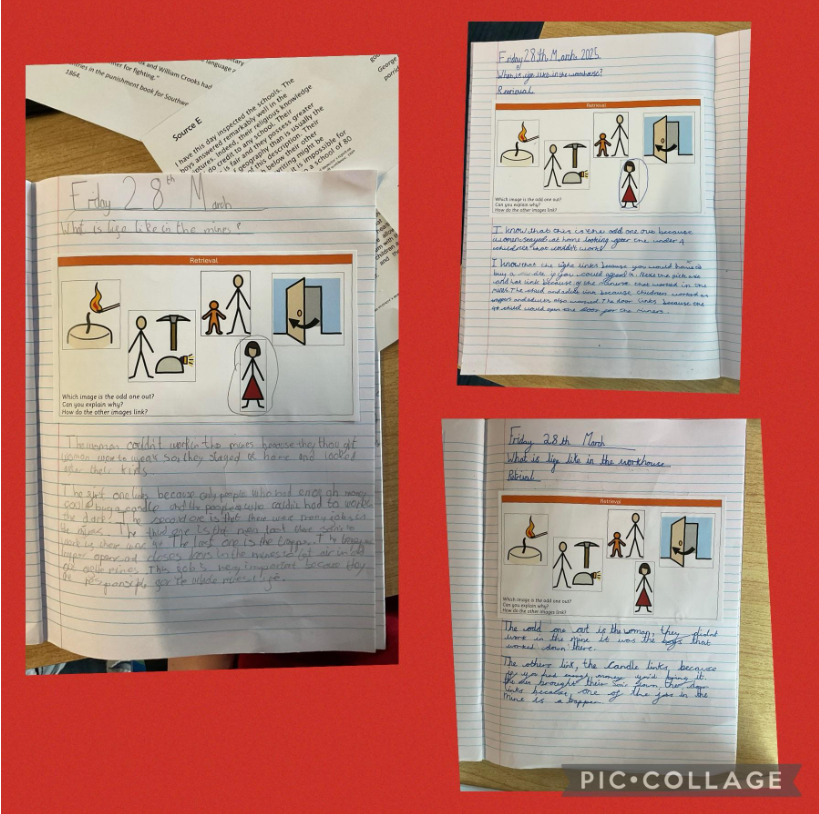 and William Crooks had
ter for fighting."
ntries in the punishment book for Southwe
1864.
language
Source E
I have this day inspected the schools. The
boys answered remarkably well in the
Indeed, their religious knowledge
do credit to any school. Their
is fair and they possess greater
geography than is usually the
of this description. Their
below their other
might be
it is impossible for
a school of 80
Friday 28th March
What is lige like in the mines?
Retrieval
Which image is the odd one out?
Can you explain why?
How do the other images link?
The woman couldn't work in the mines because they thought
women were to weak so they stayed at home and looked
after their kids
The first one links because only people who had enough money
could buy a candle and the people who couldn't had to work in
the dark. The second one is that there were many jobs in
the mines. The third one is the
The last one is the trapper. The
trapper opens and closes doors in the mines to let air in and
out of the mines. This job is very important because they
Friday 28th March 2025
What is lige like in the workhouse?
Retrieval
Retrieval
Which image is the odd one out?
Can you explain why?
How do the other images link?
I know that this is the odd one out because
women stayed at home looking after the under 4
children that couldn't work.
I know that the light links because you would have to
buy a candle if you could afford it. Next the pick axe
would link because of the miners that worked in the
mines. The child and adult link because children worked in
and adults also worked. The door links because the
child would open the door for the miners.
Friday 28th March
What is lige like in the workhouse
Retrieval
Retrieval
Which image is the odd one out?
Can you explain why?
How do the other images link?
The odd one out is the woman, they didn't
work in the mine it was the boys that
worked down there.
The others link, the candle links, because
if you had enough money you'd bring it.
brought their son down, the door
links because, one of the jobs in the
mine is a trapper
PIC•COLLAGE